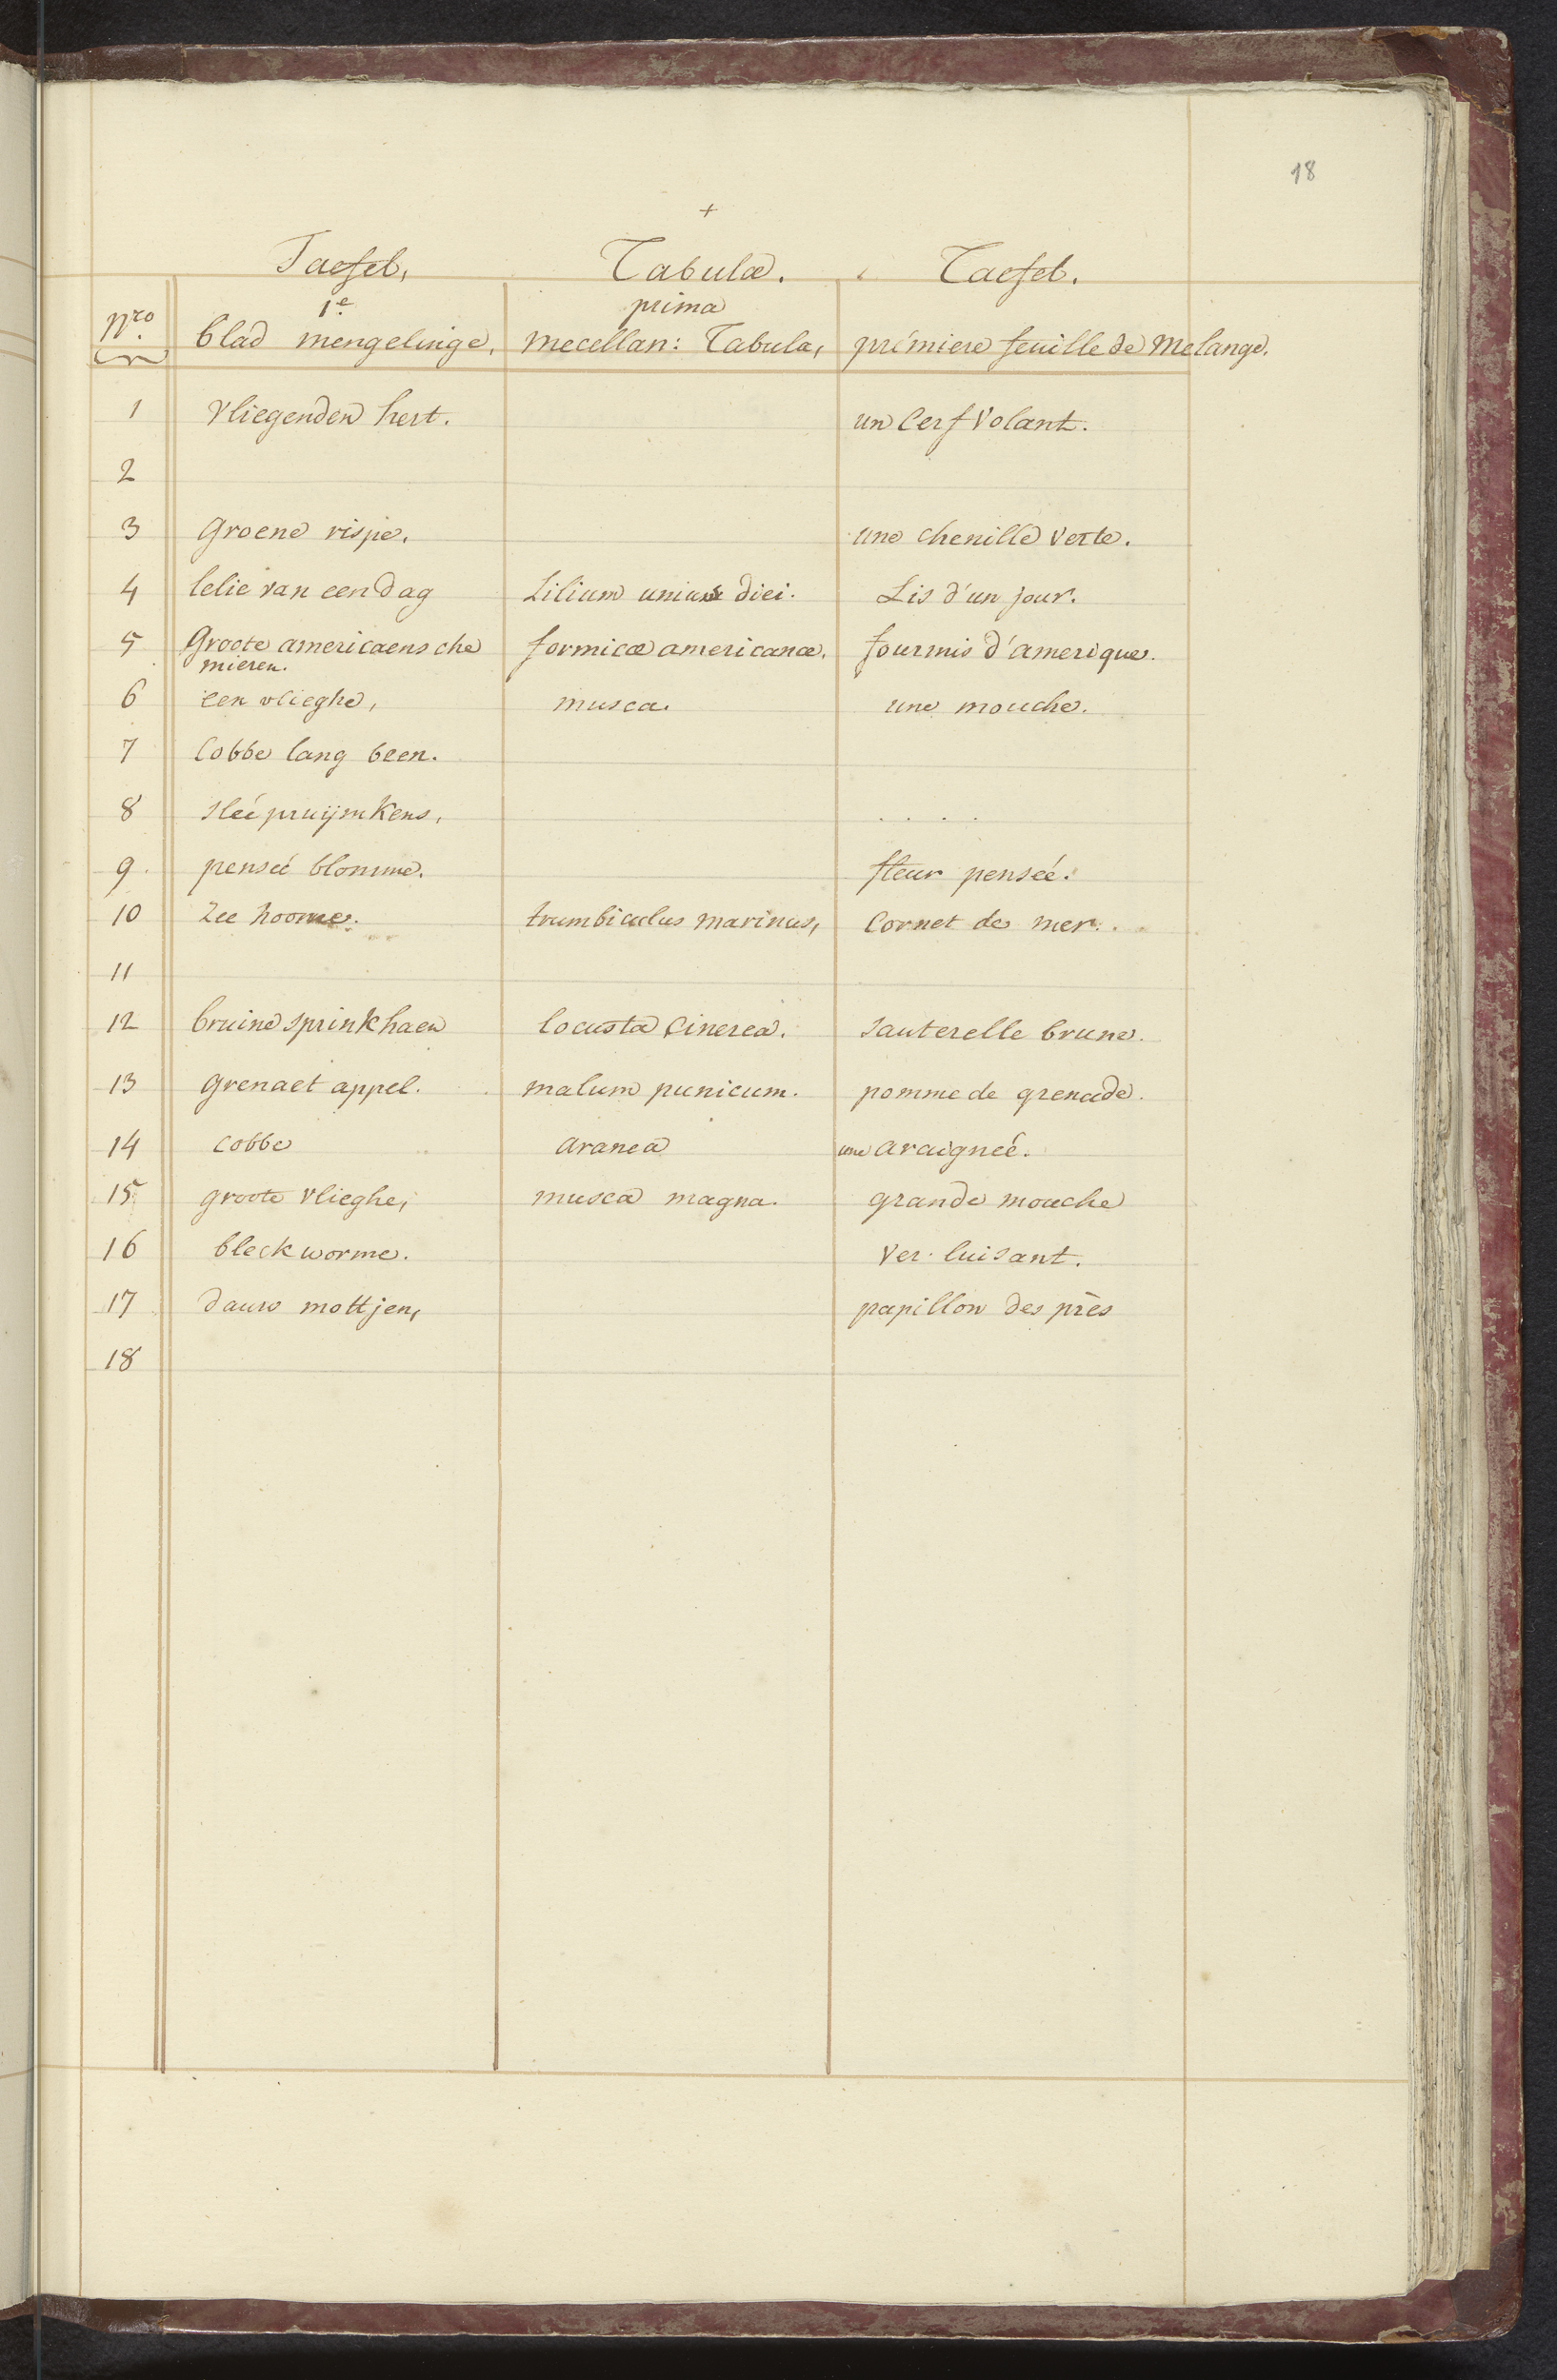 18
+
Taefel, Tabula. Taefel.
1e prima
Nro. blad mengelinge, mecellan: Tabula, prémiere feuille de Melange.
1 Vliegenden hert. un Cerf Volant.
2
3 Groene rispe. une chenille verte.
4 lelie van een dag Lilium unius diei. Lis d'un jour.
5 Groote americaensche formicæ americanæ. fourmis d'amerique.
mieren.
6 een vlieghe, musca. une mouche.
7 Cobbe lang been.
8 sleé pruijmkens, . . . .
9 penseé blomme. fleur penseé.
10 Zee hoorne. trumbiculus marinus, Cornet de mer.
11
12 bruine sprinkhaen locusta Cinerea. sauterelle brune.
13 grenaet appel. malum punicum. pomme de grenade.
14 cobbe aranea une araigneé.
15 groote vlieghe, musca magna. grande mouche
16 bleckworme. Ver luisant.
17 dauw mottjen, papillon des près
18